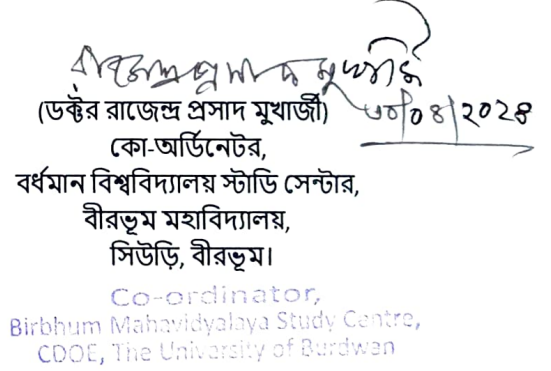 রাজেন্দ্র প্রসাদ মুখার্জি
(ডক্টর রাজেন্দ্র প্রসাদ মুখার্জী) ৩০/০৪/২০২৪
কো-অর্ডিনেটর,
বর্ধমান বিশ্ববিদ্যালয় স্টাডি সেন্টার,
বীরভূম মহাবিদ্যালয়,
সিউড়ি, বীরভূম।
Co-ordinator,
Birbhum Mahavidyalaya Study Centre,
CDOE, The University of Burdwan